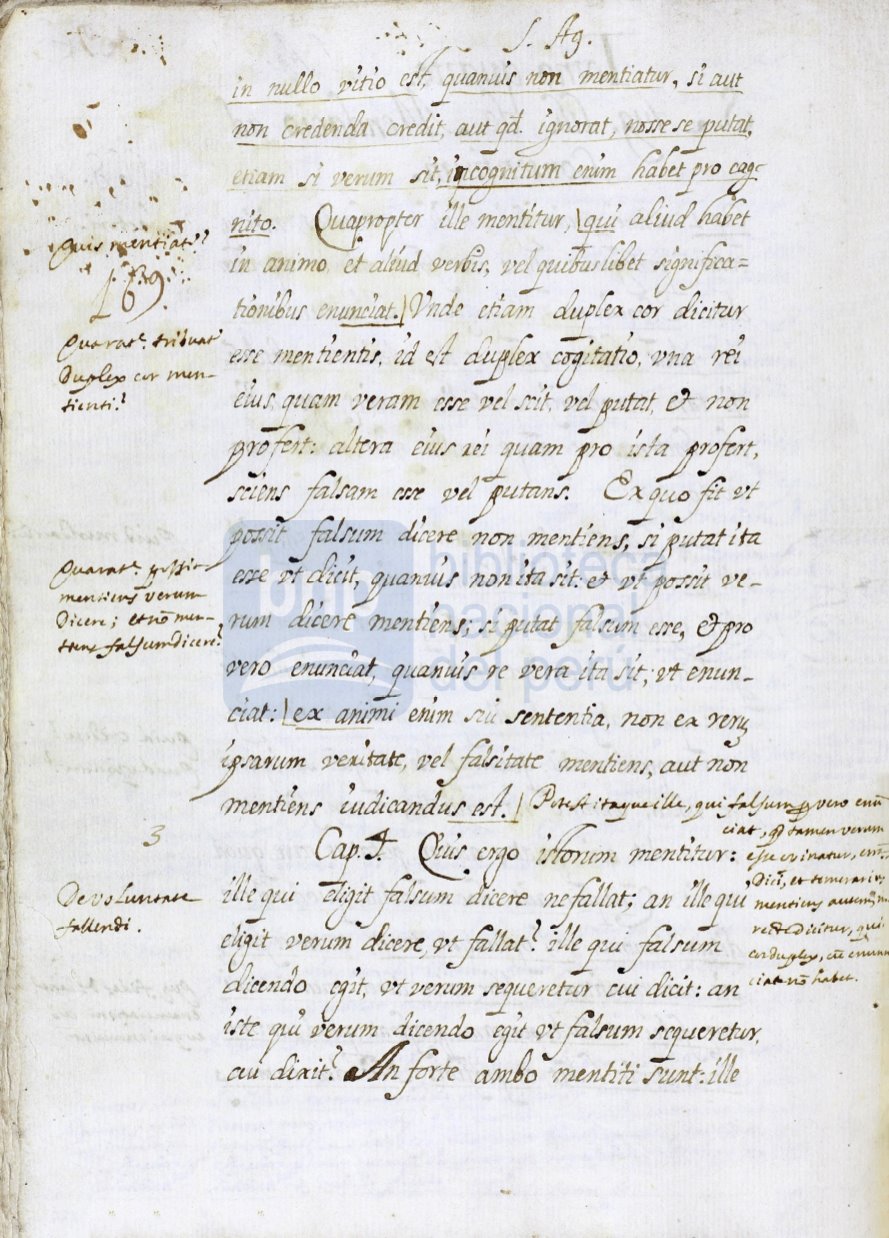 S. Ag.
in nullo vitio est, quanuis non mentiatur, si aut
non credenda credit, aut qd. ignorat, nosse se putat,
etiam si verum sit, incognitum enim habet pro cog-
nito. Quapropter ille mentitur, qui aliud habet
in animo, et aliud verbis, vel quibuslibet significa=
tionibus enunciat. Vnde etiam duplex cor dicitur
esse mentientis, id est duplex cogitatio, vna rei
eius, quam veram esse vel scit, vel putat, et non
profert: altera eius rei quam pro ista profert,
sciens falsam esse vel putans. Ex quo fit vt
possit falsum dicere non mentiens, si putat ita
esse vt dicit, quanuis non ita sit: et vt possit ve-
rum dicere mentiens; si putat falsum esse, et pro
vero enunciat, quanuis re vera ita sit; vt enun-
ciat: ex animi enim sui sententia, non ex rerū
ipsarum veritate, vel falsitate mentiens, aut non
mentiens iudicandus est.
Cap. 4. Quis ergo istorum mentitur:
ille qui eligit falsum dicere ne fallat; an ille qui
eligit verum dicere, vt fallat? ille qui falsum
dicendo egit, vt verum sequeretur cui dicit: an
iste qui verum dicendo egit vt falsum sequeretur,
cui dixit? An forte ambo mentiti sunt: ille
Quis mentiat?
Duplex cor men-
tienti?
mentiens verum
Dicere; et nō men-
tiens falsum dicere?
3
De voluntate
fallendi.
Potest itaque ille, qui falsum p vero enū
ciat, qd tamen verum
esse
et temerarius
mentiens autem
recte dicitur, qui
cor duplex, cū enun
ciat nō habet.
biblioteca
nacional
del perú
bnp